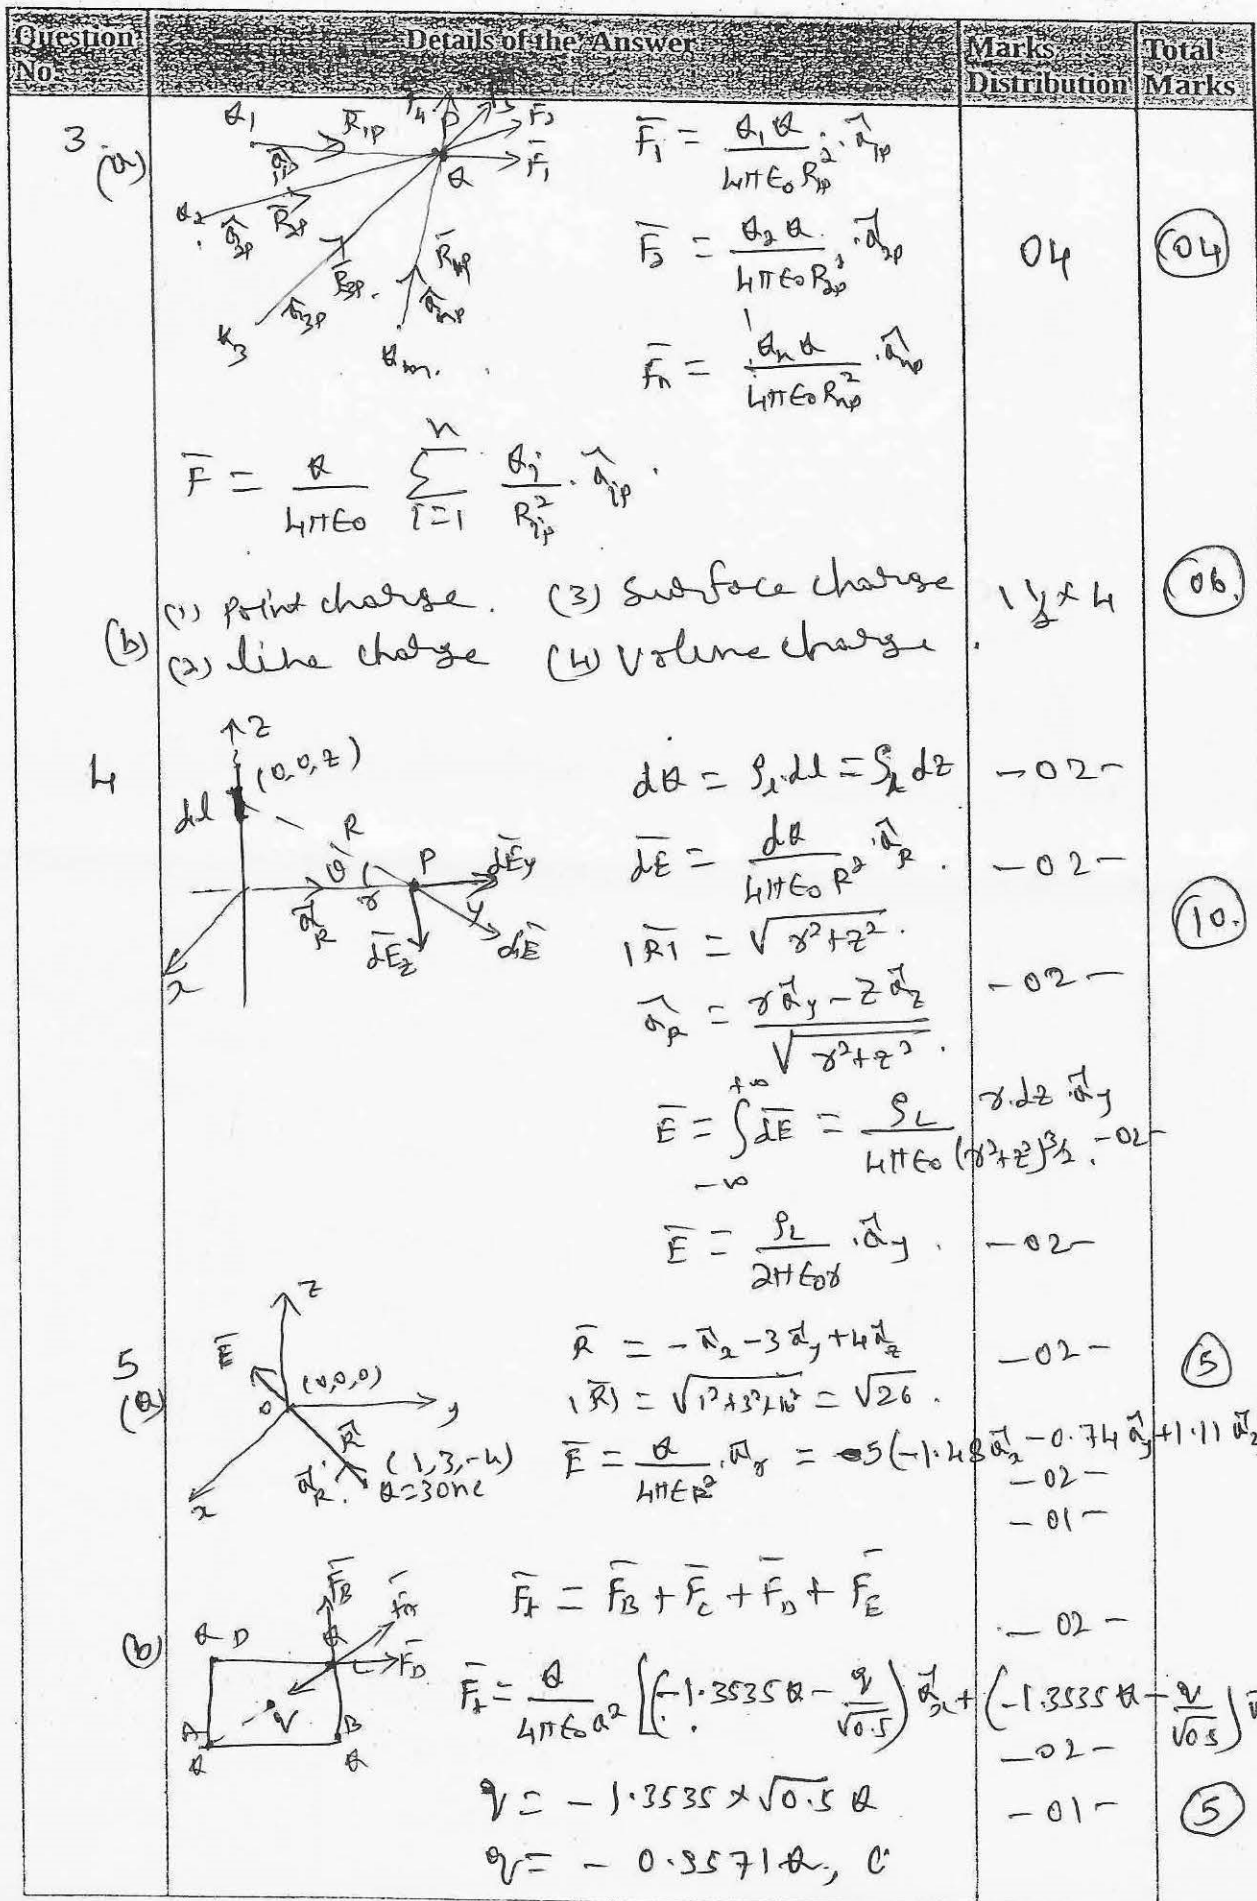 Question No. Details of the Answer Marks Distribution Total Marks
3. (a)
Q₁ R̄₁ₚ P F̄₂ F̄₁ Q
Q₂ â₂ₚ R̄₂ₚ
R̄₃ₚ â₃ₚ R̄ₙₚ âₙₚ
Q₃
F̄₁ = Q₁Q / 4πε₀R₁ₚ² . â₁ₚ
F̄₂ = Q₂Q / 4πε₀R₂ₚ² . â₂ₚ 04 (04)
F̄ₙ = QₙQ / 4πε₀Rₙₚ² . âₙₚ
F̄ = Q / 4πε₀ Σ(i=1 to n) Qᵢ / Rᵢₚ² . âᵢₚ .
(b) (1) Point charge. (3) Surface charge 1½ × 4 (06)
(2) line charge (4) Volume charge.
4
z (0,0,z) dl R θ P dĒy âR r y dĒz dĒ x
dQ = ρL.dl = ρL dz -02-
dĒ = dQ / 4πε₀R² . âR . -02-
|R̄| = √(r²+z²) . (10.)
âR = (r ây - z âz) / √(r²+z²) . -02-
Ē = ∫(-∞ to +∞) dĒ = ρL / 4πε₀ r.dz.ây / (r²+z²)^3/2 . -02-
Ē = ρL / 2πε₀r . ây . -02-
5 (a)
z Ē (0,0,0) 0 y R̄ (1,3,-4) âR Q=30nc x
R̄ = -âx - 3ây + 4âz -02- (5)
|R̄| = √(1²+3²+4²) = √26 .
Ē = Q / 4πεR² . âr = 5(-1.48âx - 0.74ây + 1.11âz
-02-
-01-
(b)
Q D F̄B Q C F̄D q A Q B Q
F̄t = F̄B + F̄C + F̄D + F̄E
-02-
F̄t = Q / 4πε₀a² [(-1.3535Q - q/√0.5) âx + (-1.3535Q - q/√0.5)
-02-
q = -1.3535 × √0.5 Q -01- (5)
q = - 0.9571Q, C